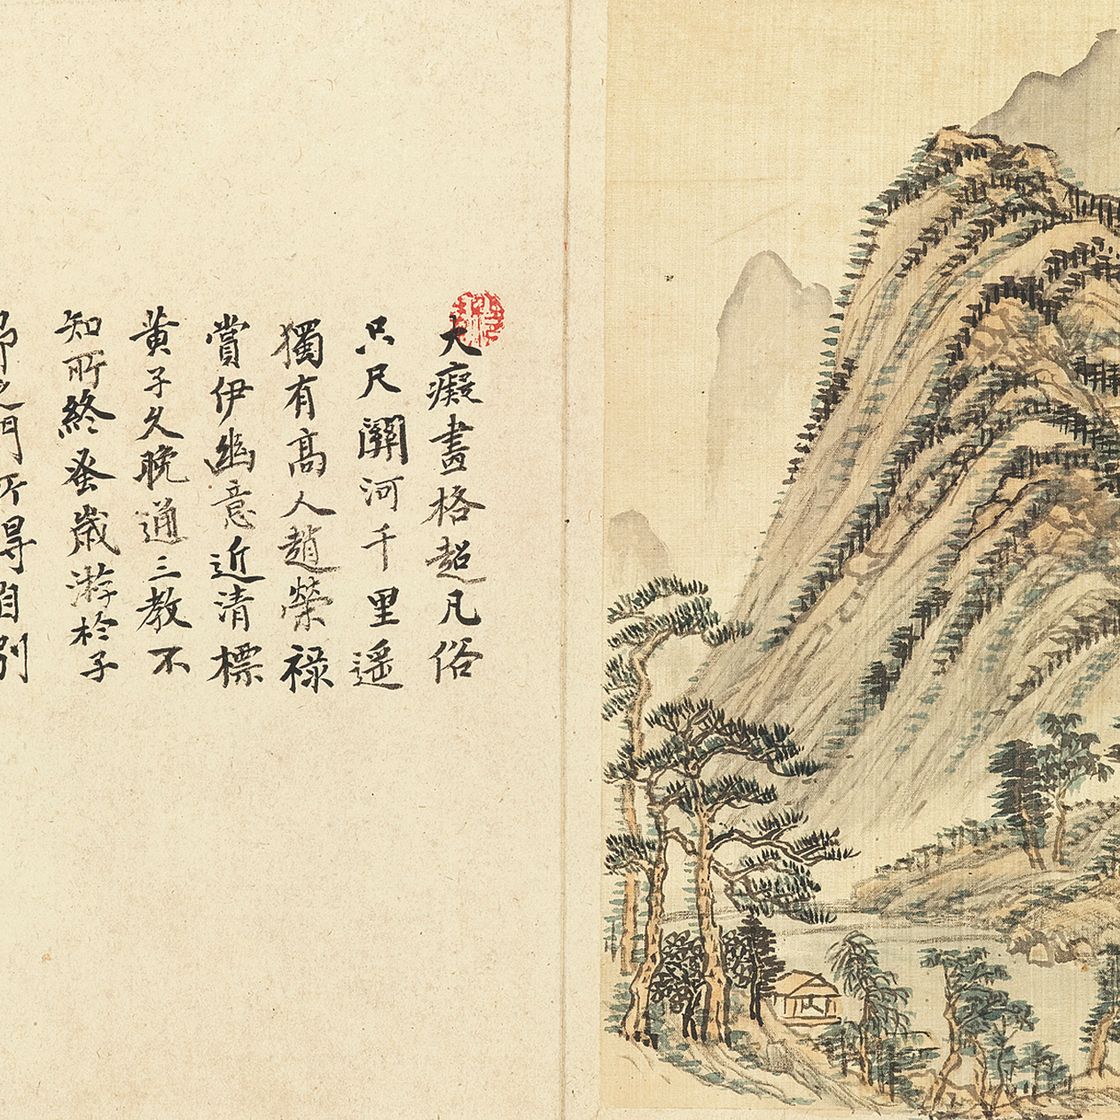 大癡畫格超凡俗
只尺關河千里遥
獨有高人趙榮祿
賞伊幽意近清標
黄子久晚通三教不
知所終蚤歲游於子
昂之門所得自別